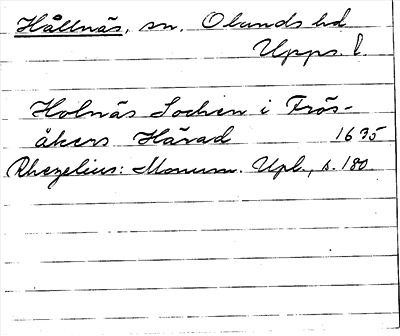 Hållnäs, sn. Olands hd
Upps. l.
Holnäs Sochen i Frös-
åkers Härad 1635
Rhezelius: Monum. Upl., s. 180